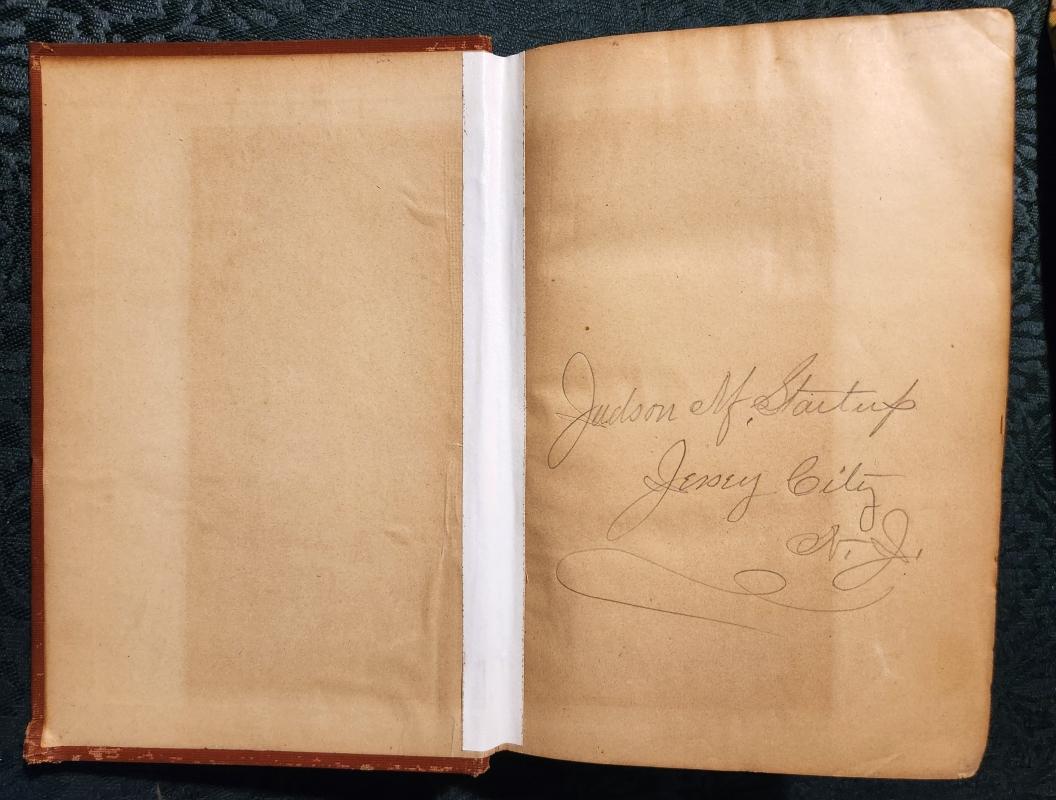 Judson M. Startup
Jersey City
N. J.